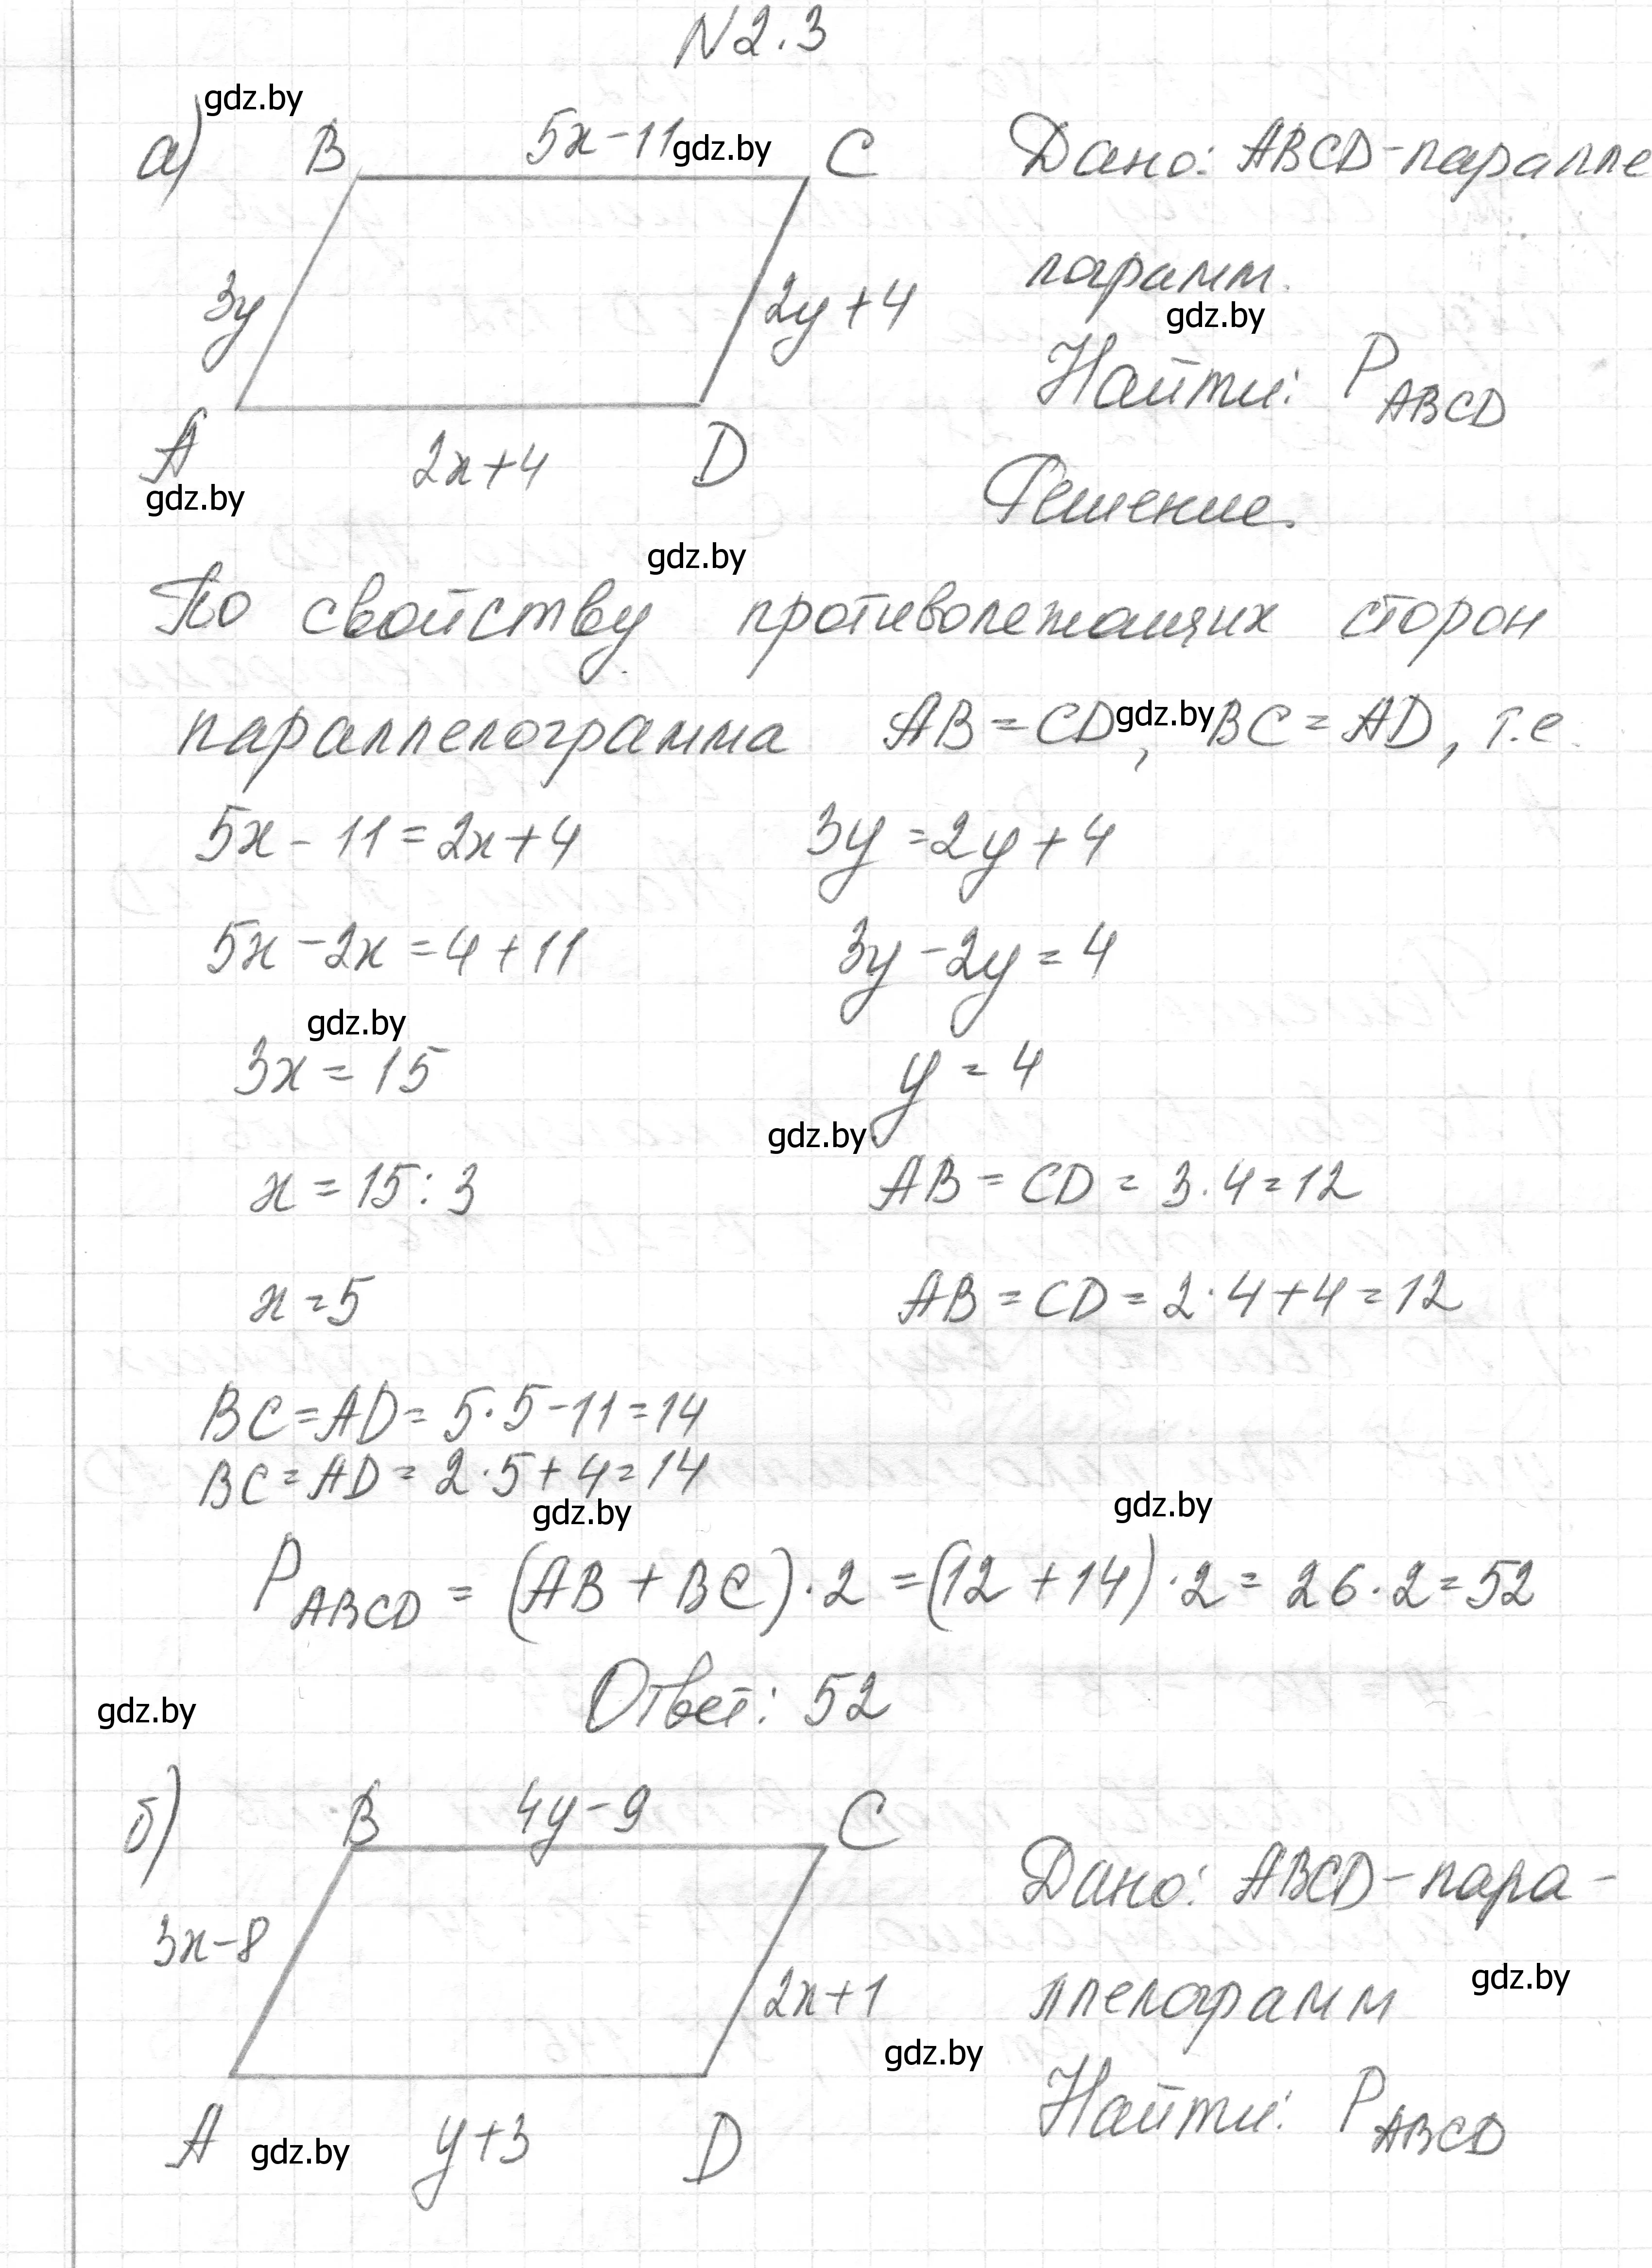 N2.3
gdz.by
а) B 5x-11 gdz.by C Дано: ABCD-паралле
лограмм.
3y 2y+4 gdz.by
Найти: P ABCD
A 2x+4 D
gdz.by Решение.
gdz.by
По свойству противолежащих сторон
параллелограмма AB=CD, gdz.by BC=AD, т.е.
5x-11=2x+4 3y=2y+4
5x-2x=4+11 3y-2y=4
gdz.by
3x=15 y=4
gdz.by
x=15:3 AB=CD=3·4=12
x=5 AB=CD=2·4+4=12
BC=AD=5·5-11=14
BC=AD=2·5+4=14
gdz.by gdz.by
P ABCD = (AB+BC)·2=(12+14)·2=26·2=52
gdz.by Ответ: 52
б) B 4y-9 C
Дано: ABCD-пара-
3x-8 gdz.by
2x+1 ллелограмм
gdz.by
Найти: P ABCD
A gdz.by y+3 D